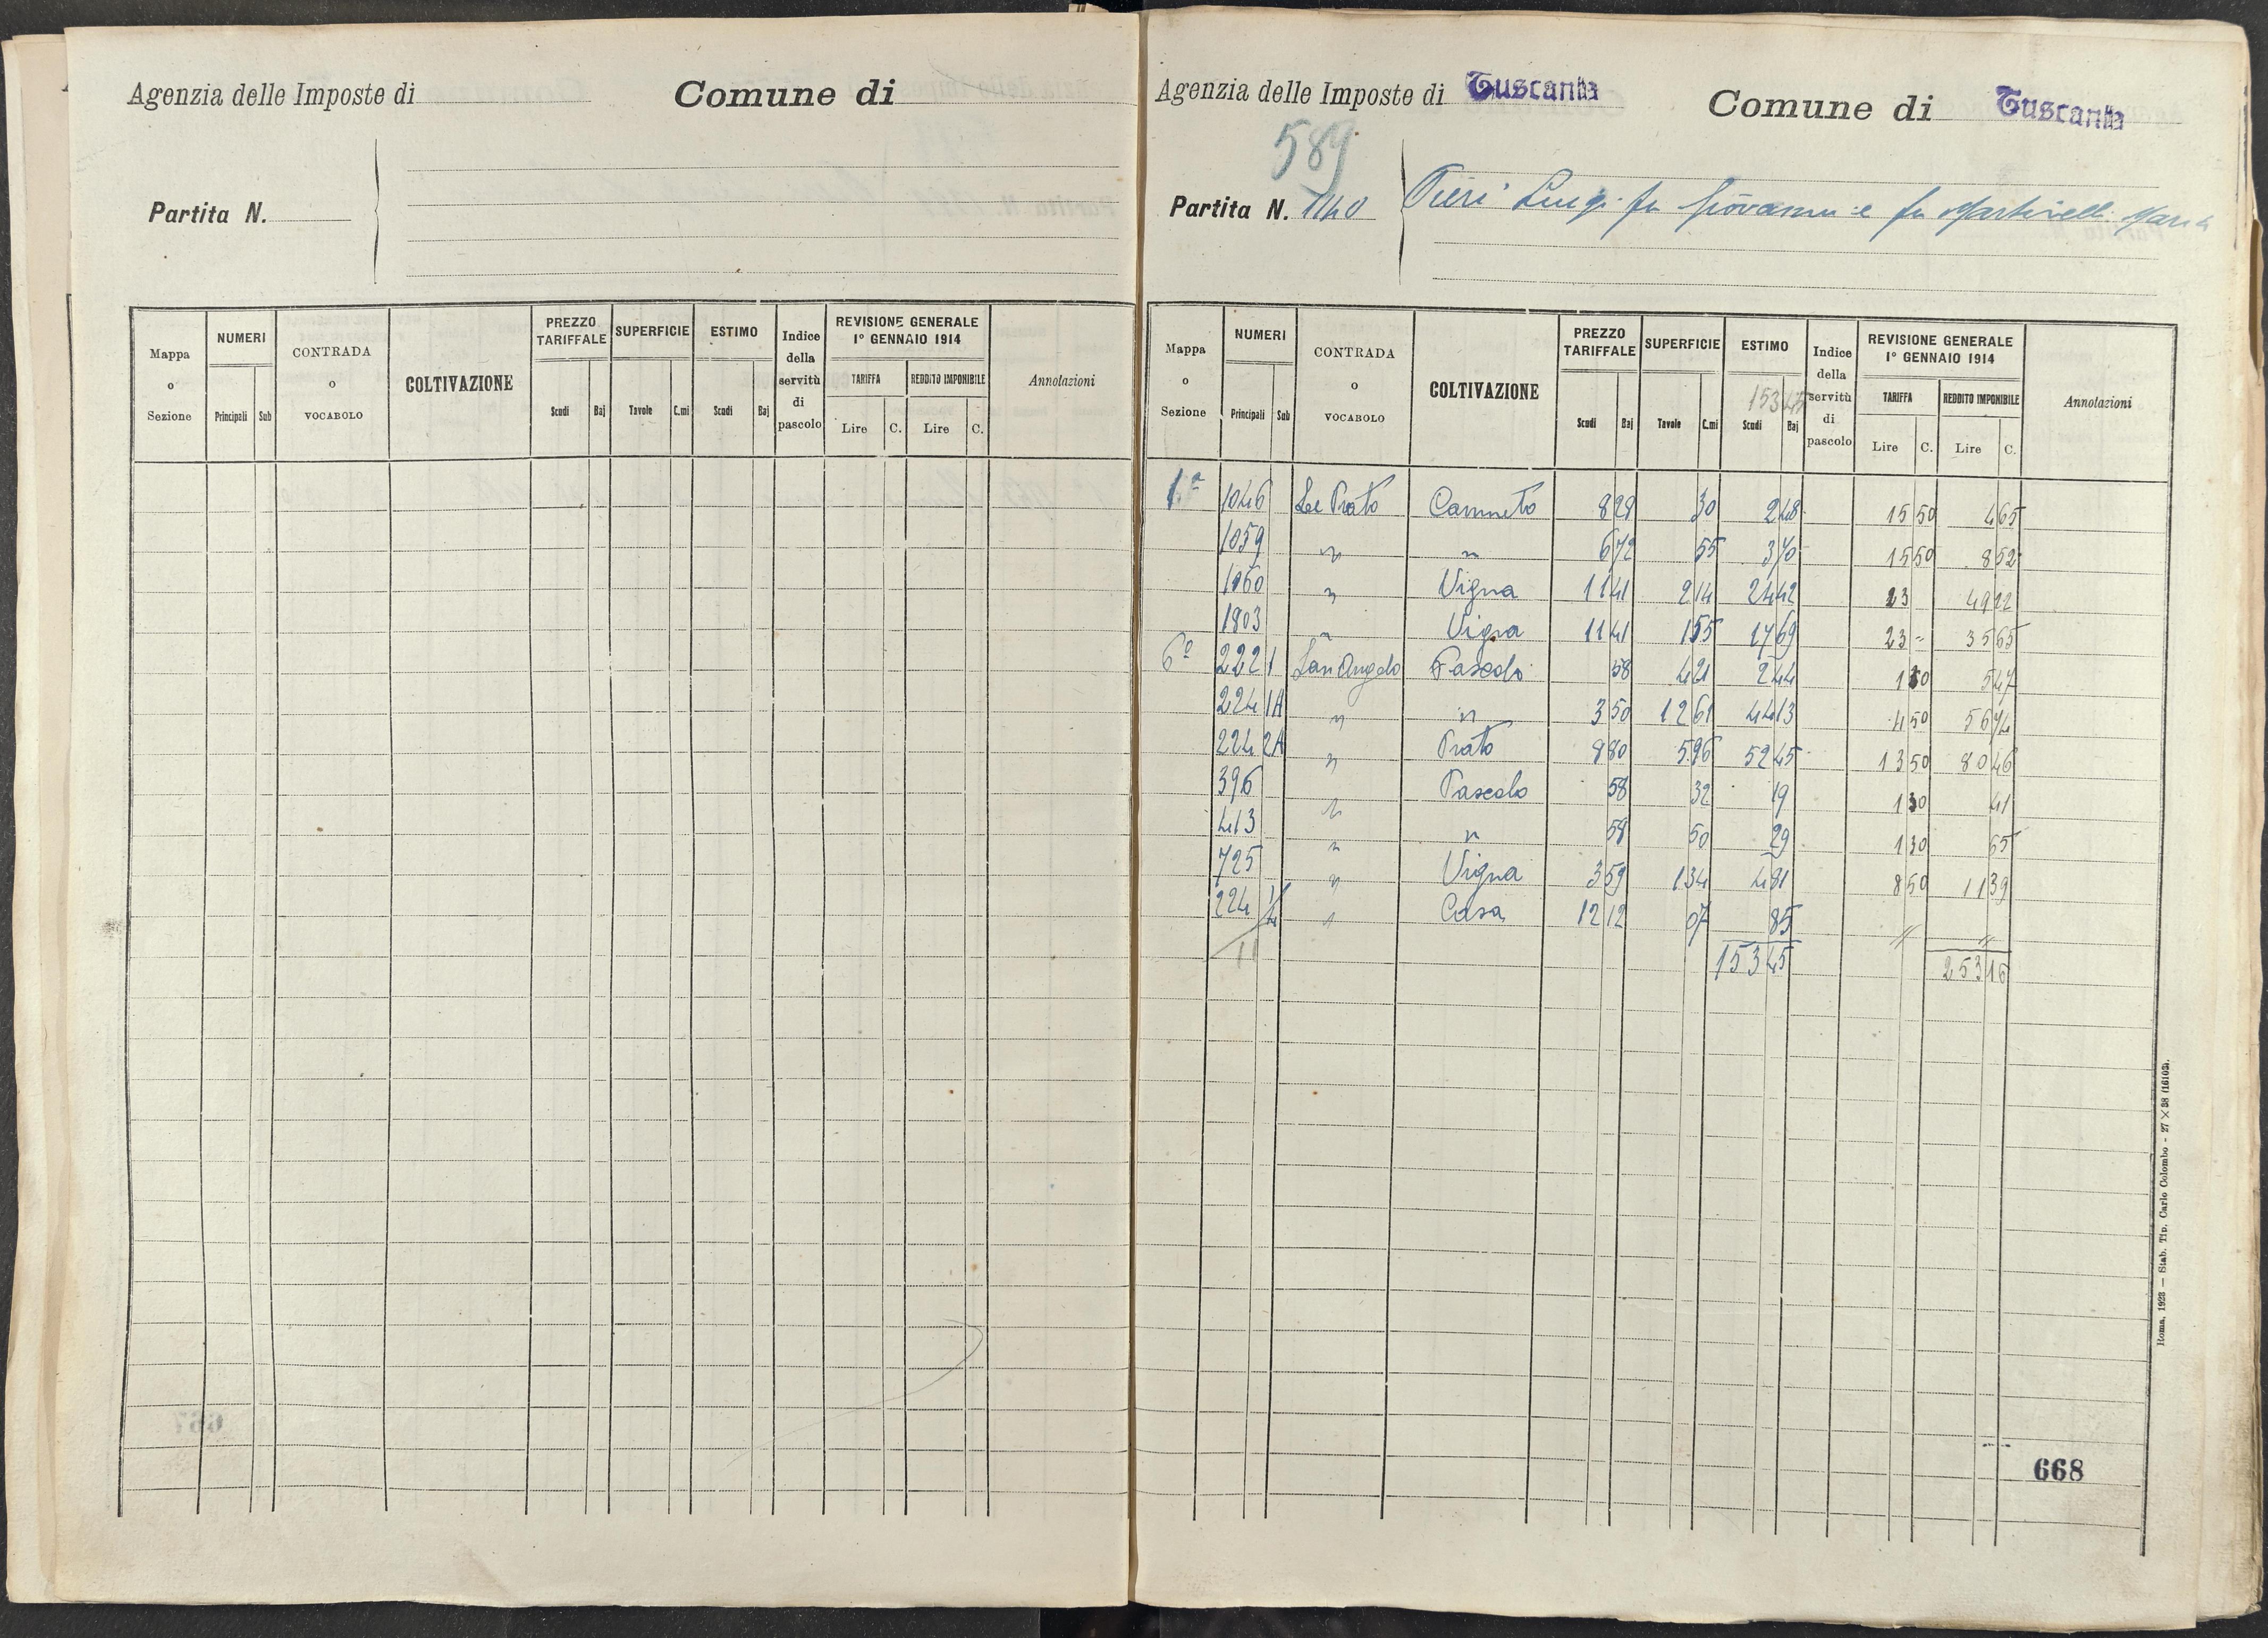 Agenzia delle Imposte di
Comune di
Partita N.
Mappa o Sezione | NUMERI Principali Sub | CONTRADA o VOCABOLO | COLTIVAZIONE | PREZZO TARIFFALE Scudi Baj | SUPERFICIE Tavole C.mi | ESTIMO Scudi Baj | Indice della servitù di pascolo | REVISIONE GENERALE 1° GENNAIO 1914 TARIFFA Lire C. REDDITO IMPONIBILE Lire C. | Annotazioni
Agenzia delle Imposte di Tuscania
Comune di Tuscania
589
Partita N. 1140 Pieri Luigi fu Giovanni e fu Martinelli Maria
Mappa o Sezione | NUMERI Principali Sub | CONTRADA o VOCABOLO | COLTIVAZIONE | PREZZO TARIFFALE Scudi Baj | SUPERFICIE Tavole C.mi | ESTIMO 153 45 Scudi Baj | Indice della servitù di pascolo | REVISIONE GENERALE 1° GENNAIO 1914 TARIFFA Lire C. REDDITO IMPONIBILE Lire C. | Annotazioni
1ª 1046 Le Prato Canneto 8 29 30 2 48 15 50 4 65
1059 " " 6 72 55 3 70 15 50 8 52
1060 " Vigna 11 41 2 14 24 42 23 49 22
1803 " Vigna 11 41 1 55 17 69 23 = 35 65
6ª 222 1 San Angelo Pascolo 58 4 21 2 44 1 30 5 47
224 1A " " 3 50 12 61 44 13 4 50 56 74
224 2A " Prato 8 80 5 96 52 45 13 50 80 46
396 " Pascolo 58 32 19 1 30 41
413 " " 58 50 29 1 30 65
725 " Vigna 3 59 1 34 4 81 8 50 11 39
224 1/4 " Casa 12 12 07 85 " "
11 153 45 253 16
Roma, 1928 — Stab. Tip. Carlo Colombo - 27 × 38 (16103).
668